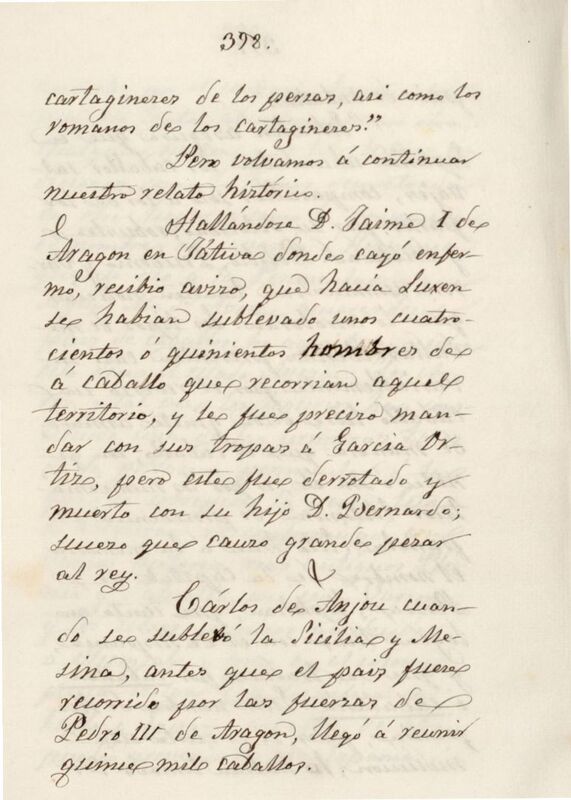 398.
cartagineses de los persas, asi como los
romanos de los cartagineses."
Pero volvamos á continuar
nuestro relato histórico.
Hallándose D. Jaime I de
Aragon en Játiva donde cayó enfer-
mo, recibio aviso, que hacia Luxen
se habian sublevado unos cuatro-
cientos ó quinientos hombres de
á caballo que recorrian aquel
territorio, y le fue preciso man-
dar con sus tropas á Garcia Or-
tiz, pero este fue derrotado y
muerto con su hijo D. Bernardo;
suceso que causo grande pesar
al rey.
Cárlos de Anjou cuan-
do se sublevó la Sicilia y Me-
sina, antes que el pais fuese
recorrido por las fuerzas de
Pedro III de Aragon, llegó á reunir
quince mil caballos.